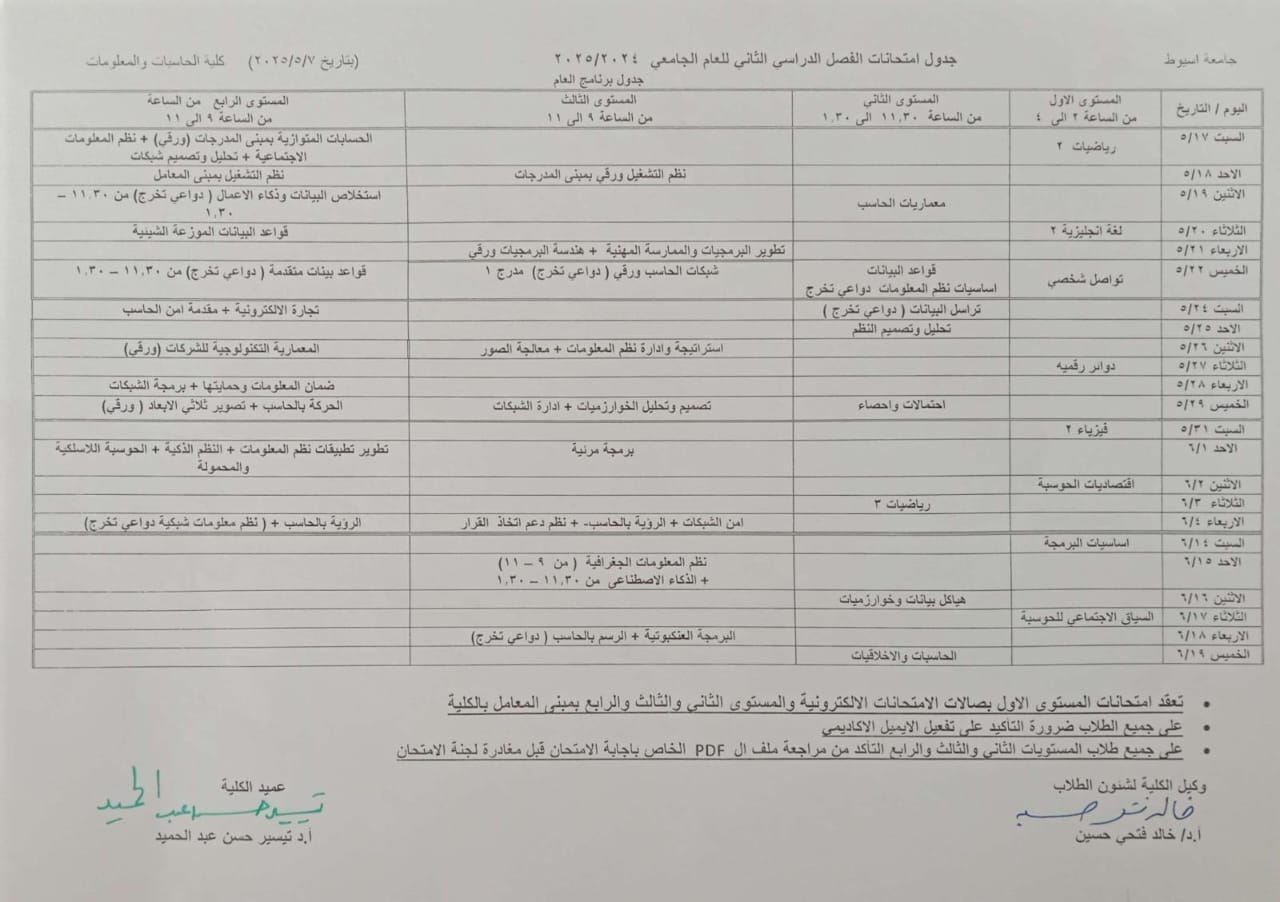 جامعة اسيوط
جدول امتحانات الفصل الدراسي الثاني للعام الجامعي ٢٠٢٥/٢٠٢٤
(بتاريخ ٢٠٢٥/٥/٧) كلية الحاسبات والمعلومات
جدول برنامج العام
اليوم / التاريخ
المستوى الاول
من الساعة ٢ الى ٤
المستوى الثاني
من الساعة ١١,٣٠ الى ١,٣٠
المستوى الثالث
من الساعة ٩ الى ١١
المستوى الرابع من الساعة
من الساعة ٩ الى ١١
السبت ٥/١٧
رياضيات ٢
الحسابات المتوازية بمبنى المدرجات (ورقي) + نظم المعلومات
الاجتماعية + تحليل وتصميم شبكات
الاحد ٥/١٨
نظم التشغيل ورقي بمبنى المدرجات
نظم التشغيل بمبنى المعامل
الاثنين ٥/١٩
معماريات الحاسب
استخلاص البيانات وذكاء الاعمال ( دواعي تخرج) من ١١,٣٠ –
١,٣٠
الثلاثاء ٥/٢٠
لغة انجليزية ٢
قواعد البيانات الموزعة الشيئية
الاربعاء ٥/٢١
تطوير البرمجيات والممارسة المهنية + هندسة البرمجيات ورقي
الخميس ٥/٢٢
تواصل شخصي
قواعد البيانات
اساسيات نظم المعلومات دواعي تخرج
شبكات الحاسب ورقي ( دواعي تخرج) مدرج ١
قواعد بينات متقدمة ( دواعي تخرج) من ١١,٣٠ – ١,٣٠
السبت ٥/٢٤
تراسل البيانات ( دواعي تخرج )
تجارة الالكترونية + مقدمة امن الحاسب
الاحد ٥/٢٥
تحليل وتصميم النظم
الاثنين ٥/٢٦
استراتيجة وادارة نظم المعلومات + معالجة الصور
المعمارية التكنولوجية للشركات (ورقي)
الثلاثاء ٥/٢٧
دوائر رقميه
الاربعاء ٥/٢٨
ضمان المعلومات وحمايتها + برمجة الشبكات
الخميس ٥/٢٩
احتمالات واحصاء
تصميم وتحليل الخوارزميات + ادارة الشبكات
الحركة بالحاسب + تصوير ثلاثي الابعاد ( ورقي)
السبت ٥/٣١
فيزياء ٢
الاحد ٦/١
برمجة مرئية
تطوير تطبيقات نظم المعلومات + النظم الذكية + الحوسبة اللاسلكية
والمحمولة
الاثنين ٦/٢
اقتصاديات الحوسبة
الثلاثاء ٦/٣
رياضيات ٣
الاربعاء ٦/٤
امن الشبكات + الرؤية بالحاسب- + نظم دعم اتخاذ القرار
الرؤية بالحاسب + ( نظم معلومات شبكية دواعي تخرج)
السبت ٦/١٤
اساسيات البرمجة
الاحد ٦/١٥
نظم المعلومات الجغرافية ( من ٩ – ١١)
+ الذكاء الاصطناعى من ١١,٣٠ – ١,٣٠
الاثنين ٦/١٦
هياكل بيانات وخوارزميات
الثلاثاء ٦/١٧
السياق الاجتماعي للحوسبة
الاربعاء ٦/١٨
البرمجة العنكبوتية + الرسم بالحاسب ( دواعي تخرج)
الخميس ٦/١٩
الحاسبات والاخلاقيات
• تعقد امتحانات المستوى الاول بصالات الامتحانات الالكترونية والمستوى الثاني والثالث والرابع بمبنى المعامل بالكلية
• على جميع الطلاب ضرورة التأكيد على تفعيل الايميل الاكاديمي
• على جميع طلاب المستويات الثاني والثالث والرابع التأكد من مراجعة ملف ال PDF الخاص باجابة الامتحان قبل مغادرة لجنة الامتحان
وكيل الكلية لشئون الطلاب
عميد الكلية
خالد فتحي حسين
تيسير حسن عبد الحميد
أ.د/ خالد فتحي حسين
أ.د تيسير حسن عبد الحميد